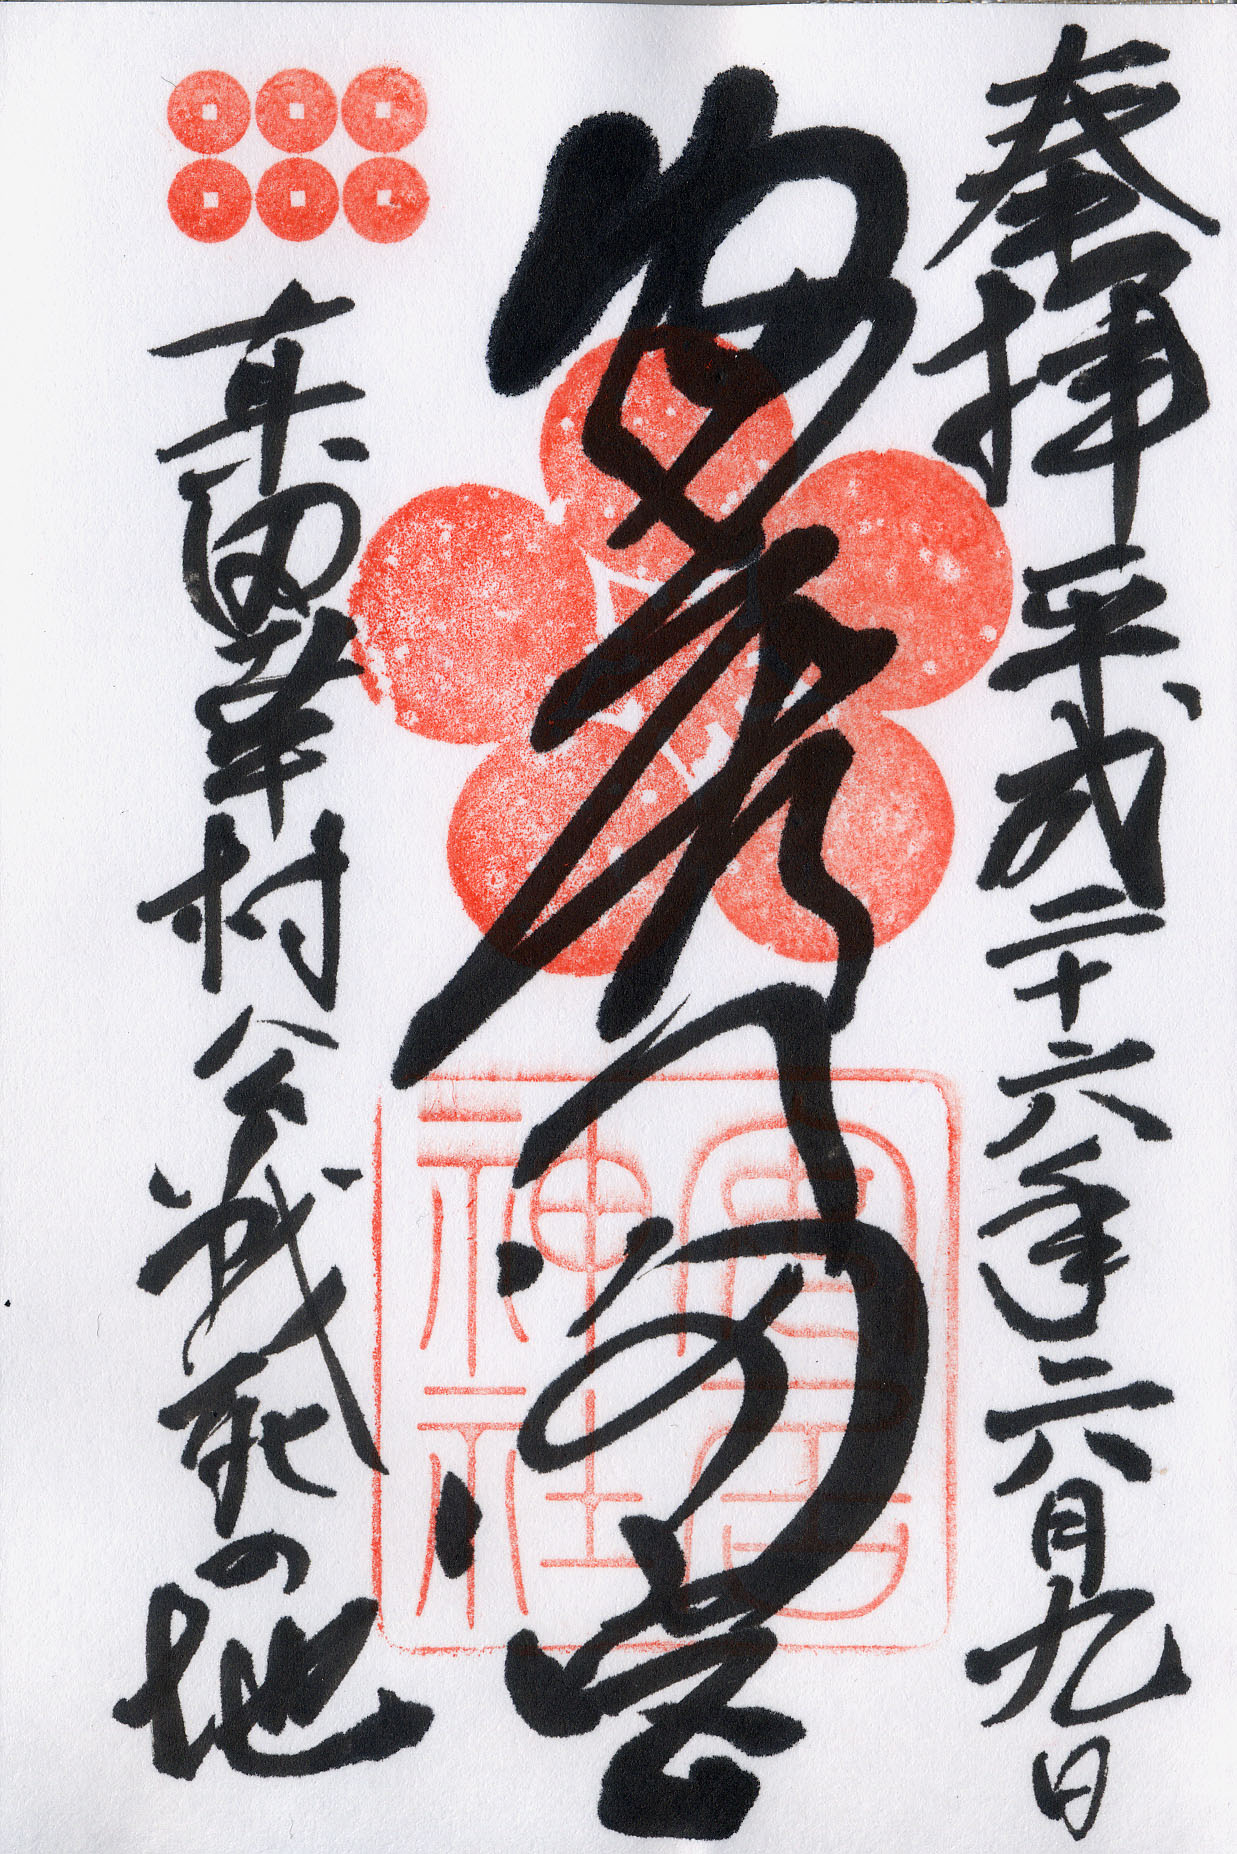 奉拝 平成二十六年六月九日
安居天満宮
真田幸村公戦死の地
安居神社